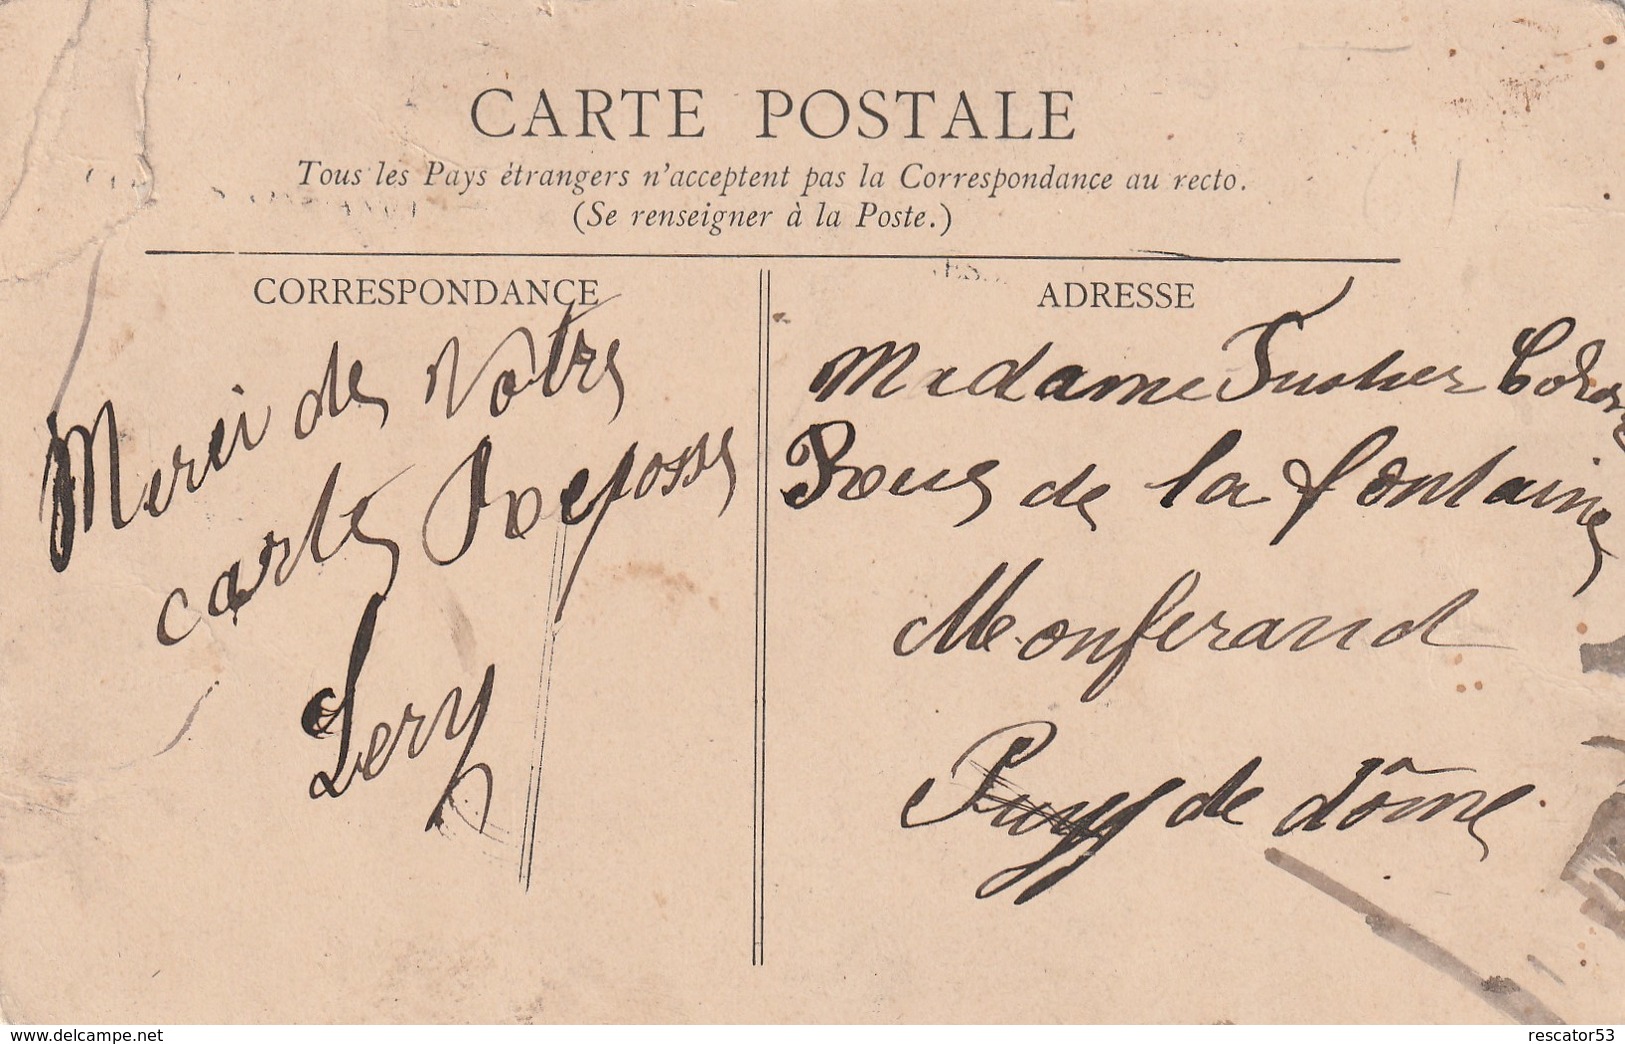 CARTE POSTALE
Tous les Pays étrangers n'acceptent pas la Correspondance au recto.
(Se renseigner à la Poste.)
CORRESPONDANCE
Merci de Votre
carte
Lery
ADRESSE
Madame
de la fontaine
Monferand
Puy de dôme
www.delcampe.net
rescator53